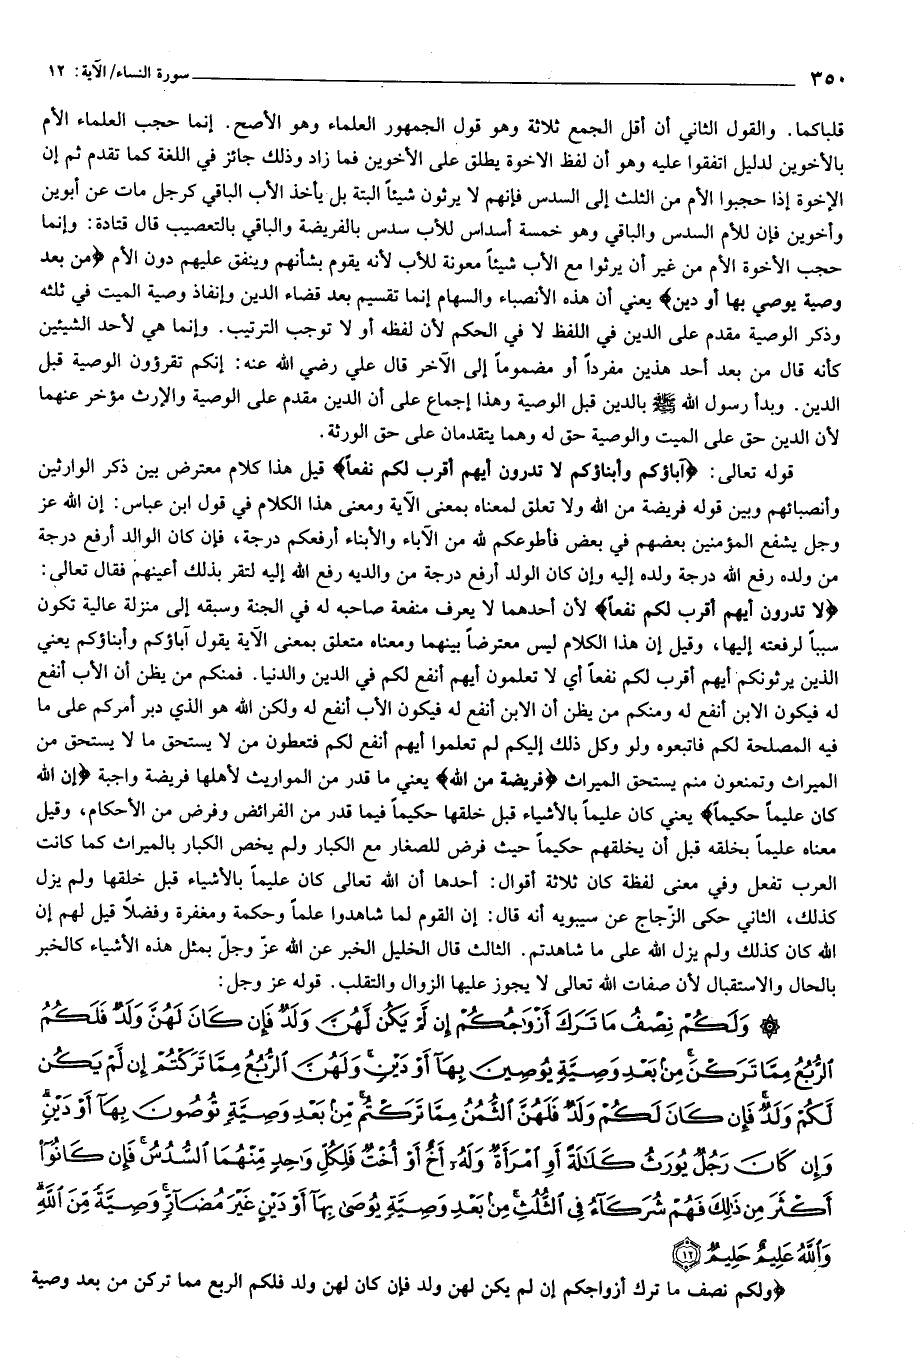 ٣٥٠ سورة النساء/ الآية: ١٢
قلباكما. والقول الثاني أن أقل الجمع ثلاثة وهو قول الجمهور العلماء وهو الأصح. إنما حجب العلماء الأم
بالأخوين لدليل اتفقوا عليه وهو أن لفظ الاخوة يطلق على الأخوين فما زاد وذلك جائز في اللغة كما تقدم ثم إن
الإخوة إذا حجبوا الأم من الثلث إلى السدس فإنهم لا يرثون شيئاً البتة بل يأخذ الأب الباقي كرجل مات عن أبوين
وأخوين فإن للأم السدس والباقي وهو خمسة أسداس للأب سدس بالفريضة والباقي بالتعصيب قال قتادة: وإنما
حجب الأخوة الأم من غير أن يرثوا مع الأب شيئاً معونة للأب لأنه يقوم بشأنهم وينفق عليهم دون الأم ﴿من بعد
وصية يوصي بها أو دين﴾ يعني أن هذه الأنصباء والسهام إنما تقسيم بعد قضاء الدين وإنفاذ وصية الميت في ثلثه
وذكر الوصية مقدم على الدين في اللفظ لا في الحكم لأن لفظه أو لا توجب الترتيب. وإنما هي لأحد الشيئين
كأنه قال من بعد أحد هذين مفرداً أو مضموماً إلى الآخر قال علي رضي الله عنه: إنكم تقرؤون الوصية قبل
الدين. وبدأ رسول الله ﷺ بالدين قبل الوصية وهذا إجماع على أن الدين مقدم على الوصية والإرث مؤخر عنهما
لأن الدين حق على الميت والوصية حق له وهما يتقدمان على حق الورثة.
قوله تعالى: ﴿آباؤكم وأبناؤكم لا تدرون أيهم أقرب لكم نفعاً﴾ قيل هذا كلام معترض بين ذكر الوارثين
وأنصبائهم وبين قوله فريضة من الله ولا تعلق لمعناه بمعنى الآية ومعنى هذا الكلام في قول ابن عباس: إن الله عز
وجل يشفع المؤمنين بعضهم في بعض فأطوعكم لله من الآباء والأبناء أرفعكم درجة، فإن كان الوالد أرفع درجة
من ولده رفع الله درجة ولده إليه وإن كان الولد أرفع درجة من والديه رفع الله إليه لتقر بذلك أعينهم فقال تعالى:
﴿لا تدرون أيهم أقرب لكم نفعاً﴾ لأن أحدهما لا يعرف منفعة صاحبه له في الجنة وسبقه إلى منزلة عالية تكون
سبباً لرفعته إليها، وقيل إن هذا الكلام ليس معترضاً بينهما ومعناه متعلق بمعنى الآية يقول آباؤكم وأبناؤكم يعني
الذين يرثونكم أيهم أقرب لكم نفعاً أي لا تعلمون أيهم أنفع لكم في الدين والدنيا. فمنكم من يظن أن الأب أنفع
له فيكون الابن أنفع له ومنكم من يظن أن الابن أنفع له فيكون الأب أنفع له ولكن الله هو الذي دبر أمركم على ما
فيه المصلحة لكم فاتبعوه ولو وكل ذلك إليكم لم تعلموا أيهم أنفع لكم فتعطون من لا يستحق ما لا يستحق من
الميراث وتمنعون منم يستحق الميراث ﴿فريضة من الله﴾ يعني ما قدر من المواريث لأهلها فريضة واجبة ﴿إن الله
كان عليماً حكيماً﴾ يعني كان عليماً بالأشياء قبل خلقها حكيماً فيما قدر من الفرائض وفرض من الأحكام، وقيل
معناه عليماً بخلقه قبل أن يخلقهم حكيماً حيث فرض للصغار مع الكبار ولم يخص الكبار بالميراث كما كانت
العرب تفعل وفي معنى لفظة كان ثلاثة أقوال: أحدها أن الله تعالى كان عليماً بالأشياء قبل خلقها ولم يزل
كذلك، الثاني حكى الزّجاج عن سيبويه أنه قال: إن القوم لما شاهدوا علماً وحكمة ومغفرة وفضلاً قيل لهم إن
الله كان كذلك ولم يزل الله على ما شاهدتم. الثالث قال الخليل الخبر عن الله عزّ وجلّ بمثل هذه الأشياء كالخبر
بالحال والاستقبال لأن صفات الله تعالى لا يجوز عليها الزوال والتقلب. قوله عز وجل:
۞ وَلَكُمْ نِصْفُ مَا تَرَكَ أَزْوَاجُكُمْ إِن لَّمْ يَكُن لَّهُنَّ وَلَدٌ فَإِن كَانَ لَهُنَّ وَلَدٌ فَلَكُمُ
ٱلرُّبُعُ مِمَّا تَرَكْنَ مِنۢ بَعْدِ وَصِيَّةٍ يُوصِينَ بِهَآ أَوْ دَيْنٍ وَلَهُنَّ ٱلرُّبُعُ مِمَّا تَرَكْتُمْ إِن لَّمْ يَكُن
لَّكُمْ وَلَدٌ فَإِن كَانَ لَكُمْ وَلَدٌ فَلَهُنَّ ٱلثُّمُنُ مِمَّا تَرَكْتُم مِّنۢ بَعْدِ وَصِيَّةٍ تُوصُونَ بِهَآ أَوْ دَيْنٍ
وَإِن كَانَ رَجُلٌ يُورَثُ كَلَٰلَةً أَوِ ٱمْرَأَةٌ وَلَهُۥٓ أَخٌ أَوْ أُخْتٌ فَلِكُلِّ وَٰحِدٍ مِّنْهُمَا ٱلسُّدُسُ فَإِن كَانُوٓا۟
أَكْثَرَ مِن ذَٰلِكَ فَهُمْ شُرَكَآءُ فِى ٱلثُّلُثِ مِنۢ بَعْدِ وَصِيَّةٍ يُوصَىٰ بِهَآ أَوْ دَيْنٍ غَيْرَ مُضَآرٍّ وَصِيَّةً مِّنَ ٱللَّهِ
وَٱللَّهُ عَلِيمٌ حَلِيمٌ ١٢
﴿ولكم نصف ما ترك أزواجكم إن لم يكن لهن ولد فإن كان لهن ولد فلكم الربع مما تركن من بعد وصية